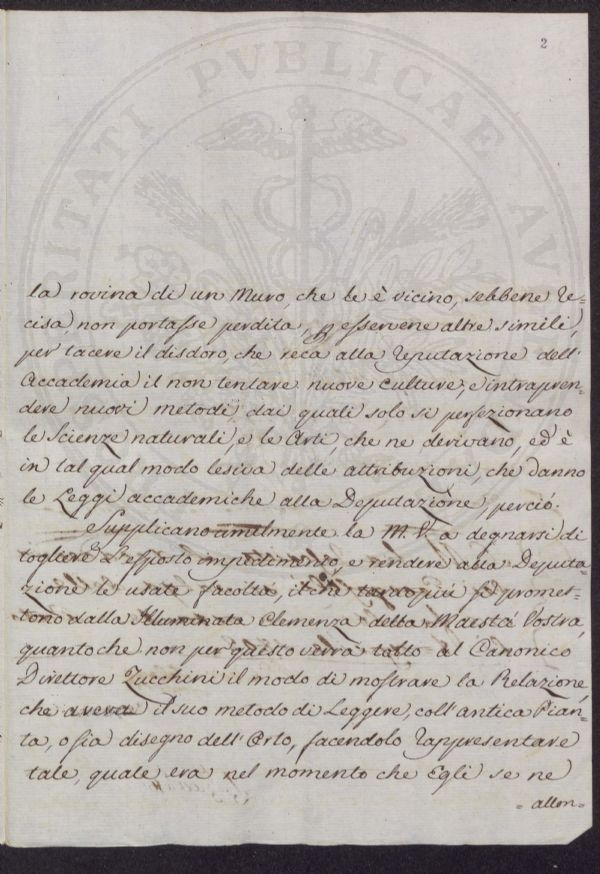 2
PVBLICAE
la rovina di un Muro, che le è vicino, sebbene re=
cisa, non portasse perdita, esservene altre simili,
per tacere il disdoro, che reca alla reputazione dell'
Accademia il non tentare nuove culture, e intrapren=
dere nuovi metodi, dai quali solo si perfezionano
le Scienze naturali, e le Arti, che ne derivano, ed è
in tal qual modo lesiva delle attribuzioni, che danno
le Leggi accademiche alla Deputazione, perciò.
Supplicano umilmente la M. V. a degnarsi di
togliere l'esposto impedimento, e rendere alla Deputa=
zione le usate facoltà, il che tanto più si promet=
tono dalla Illuminata Clemenza della Maestà Vostra,
quanto che non per questo verrà tolto al Canonico
Direttore Zucchini il modo di mostrare la Relazione
che aveva il suo metodo di Leggere, coll'antica Pian=
ta, o sia disegno dell'Orto, facendolo rappresentare
tale, quale era nel momento che Egli se ne
= allon=